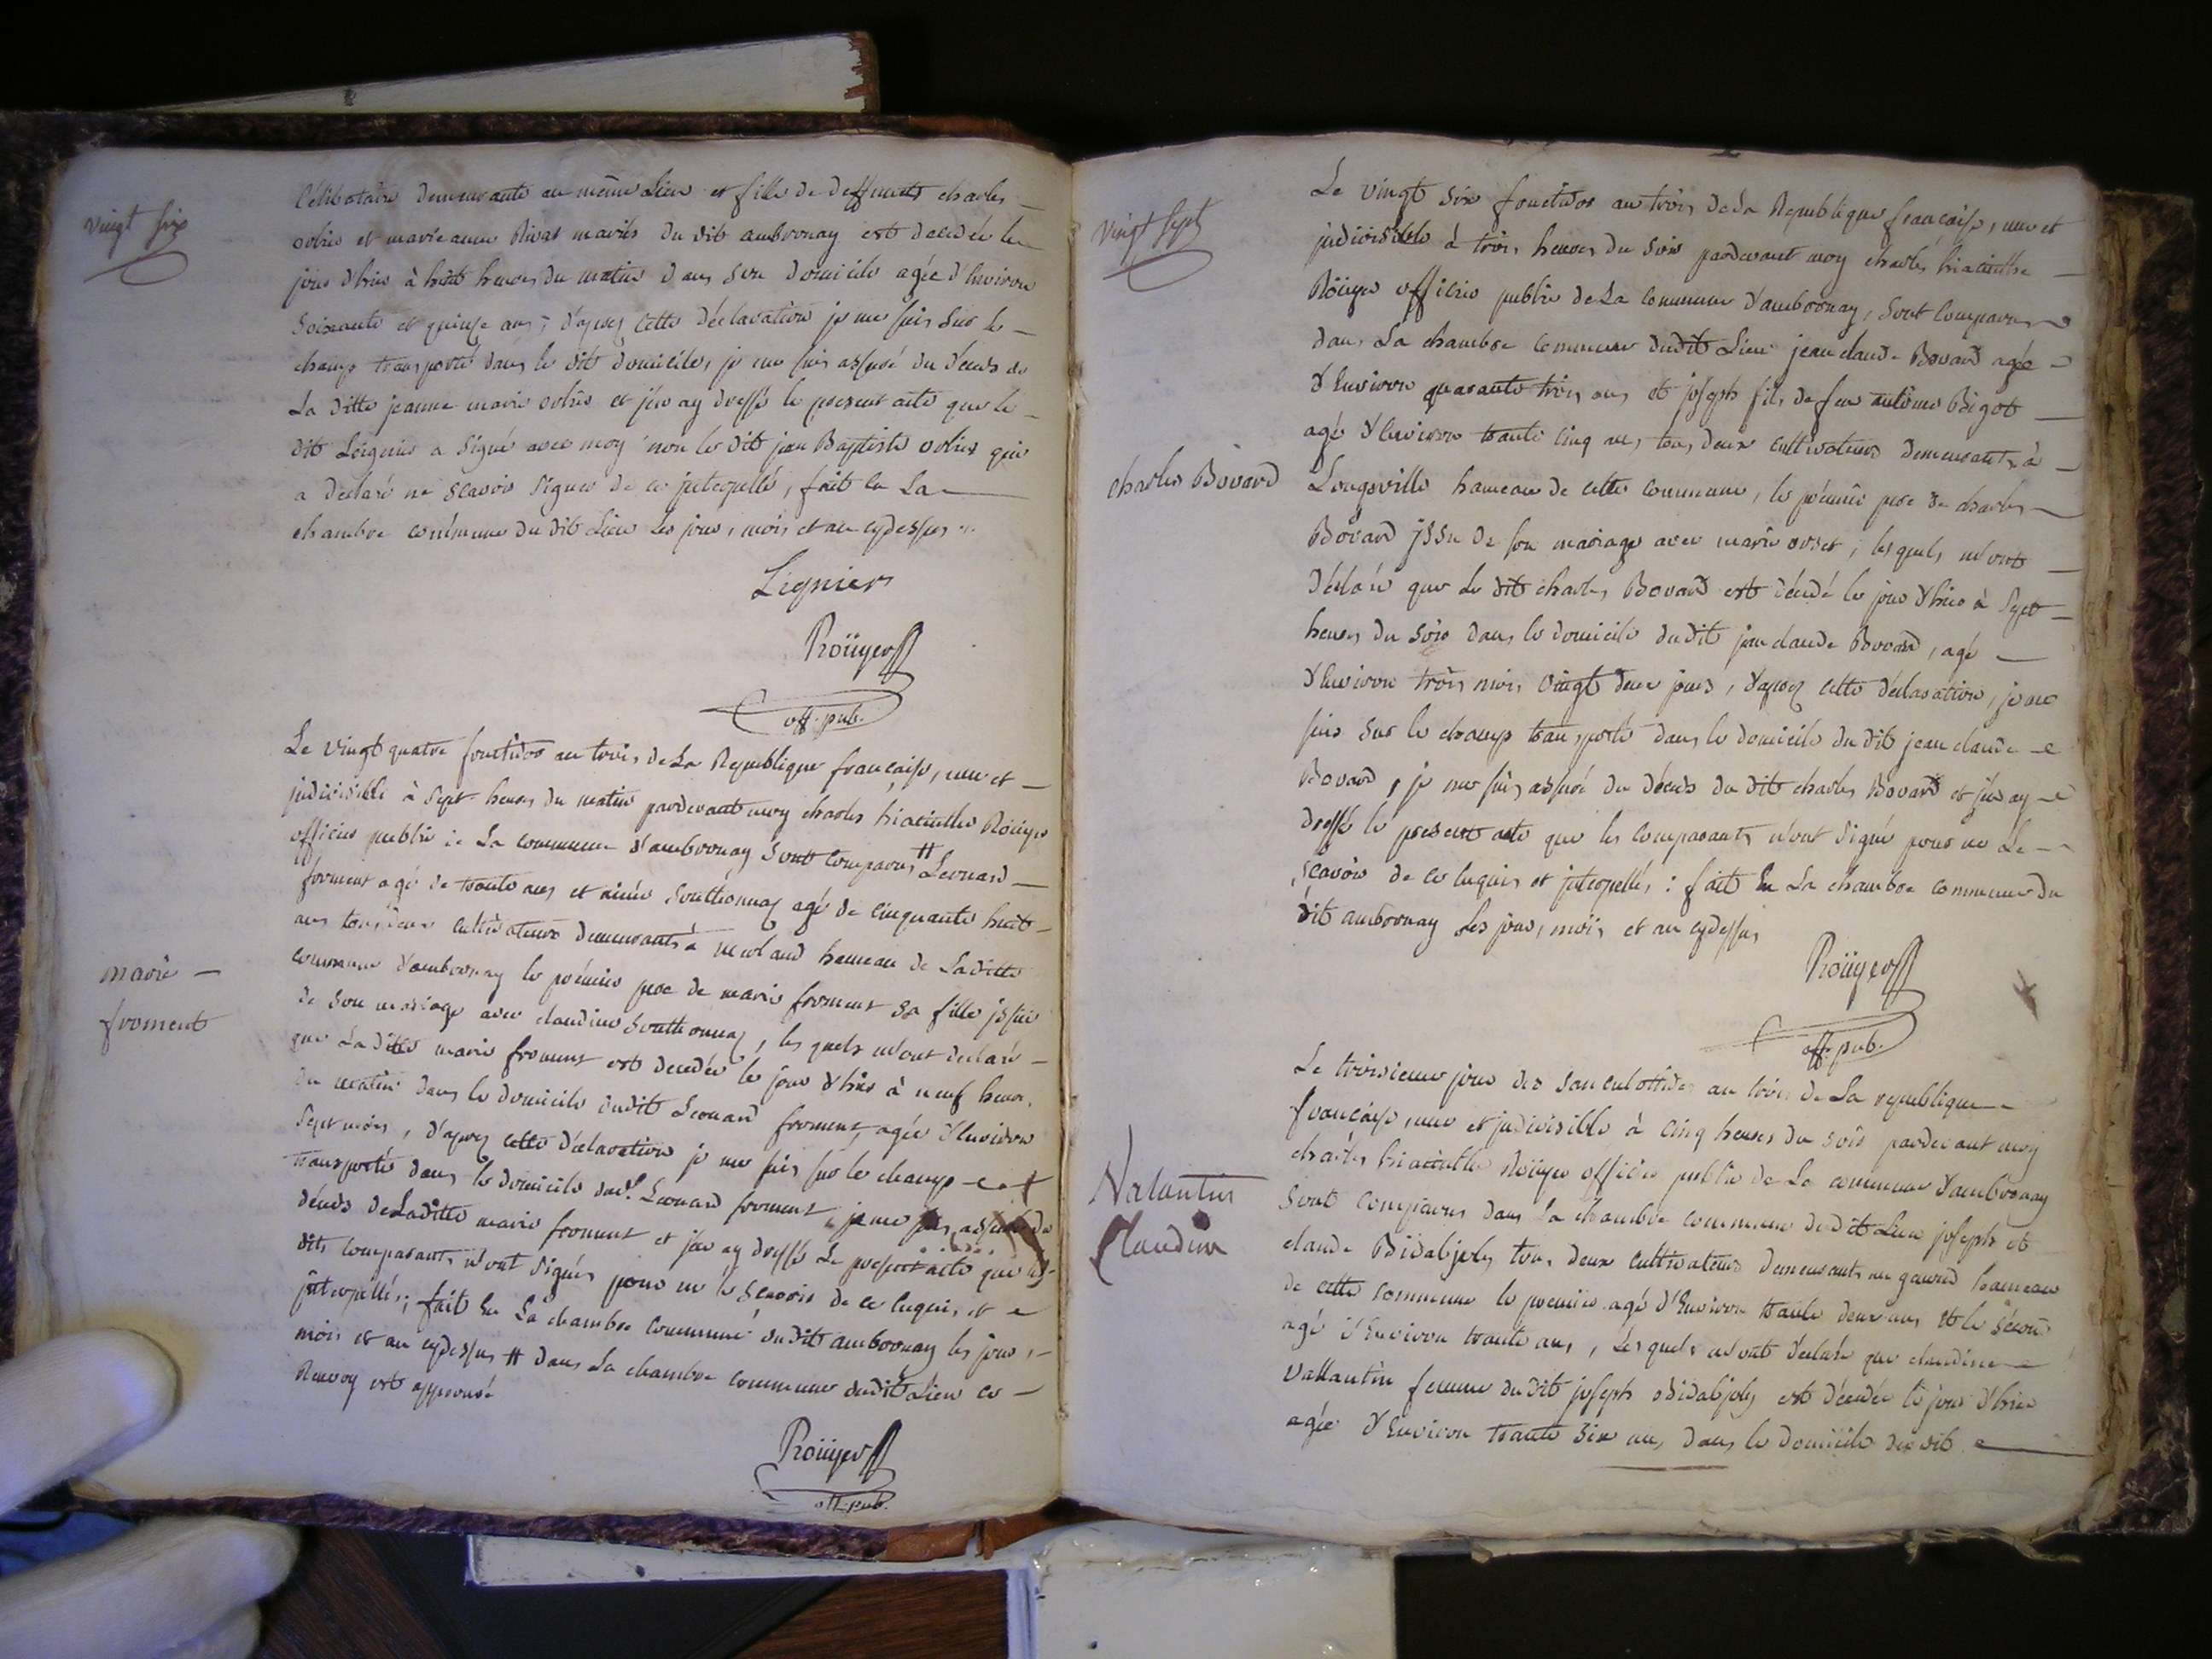 vingt six
Célibataire demeurante au même Lieu et fille de deffunts charles
orlier et marie anne Rivat mariés du dit ambronay est decedée le
jour d'hier à huit heures du matin dans son domicile agée d'Environ
soixante et quinze ans; d'aprez cette déclaration je me suis sur le
champ transporté dans le dit domicile, je me suis assuré du décès de
La ditte jeanne marie orlier et j'en ay dressé le present acte que le
dit Légnier a signé avec moy non le dit jean Baptiste orlier qui
a déclaré ne scavoir signer de ce jnterpellé, fait en La
chambre commune du dit Lieu Les jour, mois et an cydessus
Legnier
Roüyer
off. pub.
Le vingt quatre fructidor an trois de La Republique francaise, une et
jndivisible à sept heures du matin pardevant moy charles hiacinthe Roüyer
officier public de La commune d'ambronay sont comparus # Leonard
froment agé de trante ans et aimé Southonnaz agé de cinquante huit
ans tous deux cultivateurs demeurants à merland hameau de Laditte
commune d'ambronay le prémier pere de marie froment sa fille jssue
de son mariage avec claudine Southonnaz, les quels m'ont declaré
que La ditte marie froment est decedée le jour d'hier à neuf heures
du matin dans le domicile dudit Leonard froment, agée d'Environ
sept mois, d'aprez cette déclaration je me suis sur le champ
transporté dans le domicile dud. Leonard froment je me suis assuré du
décès de Laditte marie froment et j'en ay dressé Le present acte que les
dits comparants n'ont signés pour ne le scavoir de ce Enquis et
jnterpellés; fait En La chambre commune dudit ambronay les jour,
mois et an cydessus # dans La chambre commune dudit Lieu ce
Renvoy est approuvé
marie
froment
Roüyer
off. pub.
vingt sept
Le vingt six fructidor an trois de La Republique francaise, une et
jndivisible à trois heures du soir pardevant moy charles hiacinthe
Roüyer officier public de La commune d'ambronay, sont comparus
dans La chambre commune dudit Lieu jean claude Bovard agé
d'Environ quarante trois ans et joseph fils de feu antoine Bigot
agé d'Environ trante cinq ans tous deux cultivateurs demeurants à
charles Bovard
Longeville hameau de cette commune, le prémier pere de charles
Bovard jssu de son mariage avec marie orset, les quels m'ont
déclaré que Le dit charles Bovard est décédé le jour d'hier à sept
heures du soir dans le domicile dudit jean claude Bovard, agé
d'Environ trois mois vingt deux jours, d'aprez cette déclaration, je me
suis sur le champ transporté dans le domicile du dit jean claude
Bovard, je me suis assuré du décès du dit charles Bovard et j'en ay
dressé le present acte que les comparants n'ont signé pour ne Le
scavoir de ce Enquis et jnterpellés: fait En La chambre commune du
dit ambronay Les jour, mois et an cydessus
Roüyer
off. pub.
Le troisieme jour des sanculottides an trois de La republique
francaise, une et jndivisible à cinq heures du soir pardevant moy
charles hiacinthe Roüyer officier public de La commune d'ambronay
sont comparus dans La chambre commune dudit Lieu joseph et
claude Bidaljoly tous deux cultivateurs demeurants au gaurid hameau
de cette commune le premier agé d'Environ trante deux ans et le sécond
agé d'Environ trante ans, Les quels m'ont déclaré que claudine
vallantin femme du dit joseph Bidaljoly est décedée le jour d'hier
agée d'Environ trante six ans, dans le domicile dudit
Valantin
Claudine